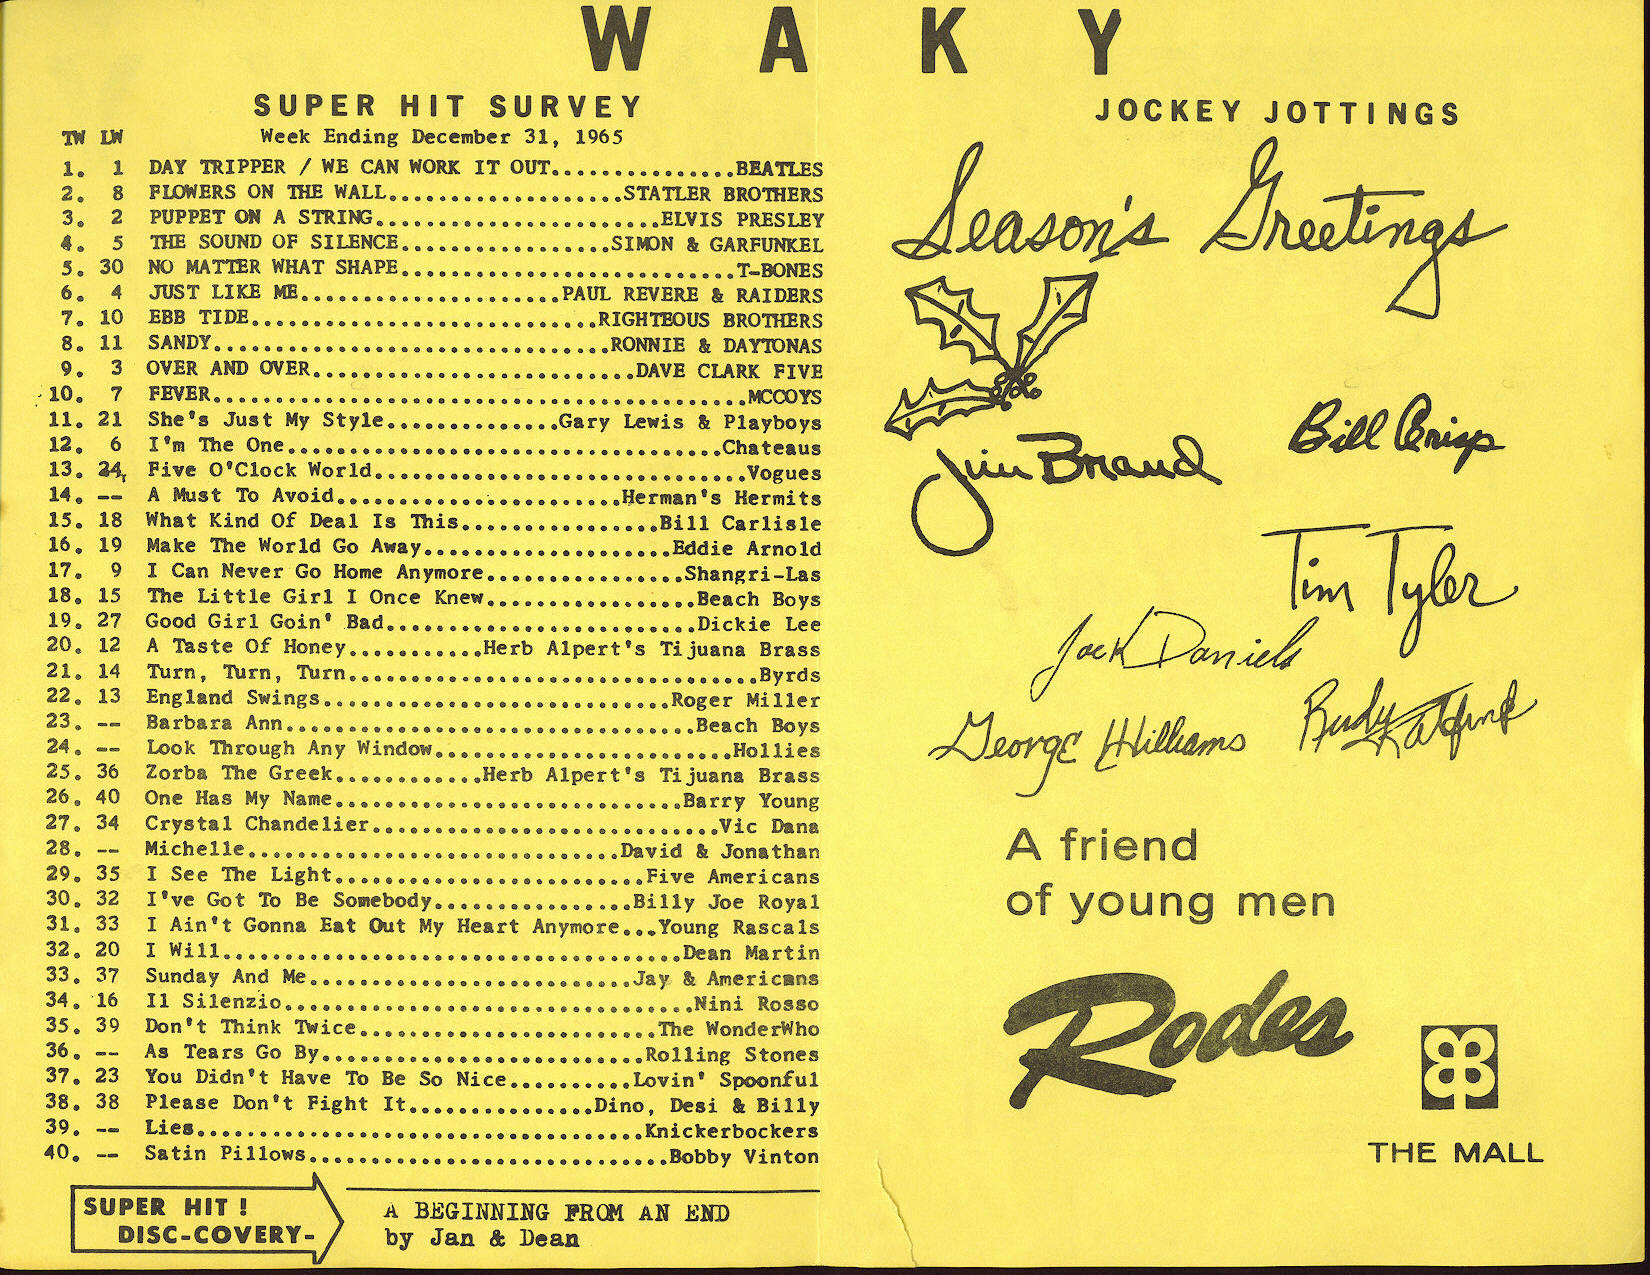 W A K Y
SUPER HIT SURVEY
TW LW Week Ending December 31, 1965
1. 1 DAY TRIPPER / WE CAN WORK IT OUT...............BEATLES
2. 8 FLOWERS ON THE WALL...................STATLER BROTHERS
3. 2 PUPPET ON A STRING.......................ELVIS PRESLEY
4. 5 THE SOUND OF SILENCE.................SIMON & GARFUNKEL
5. 30 NO MATTER WHAT SHAPE...........................T-BONES
6. 4 JUST LIKE ME.....................PAUL REVERE & RAIDERS
7. 10 EBB TIDE............................RIGHTEOUS BROTHERS
8. 11 SANDY................................RONNIE & DAYTONAS
9. 3 OVER AND OVER..........................DAVE CLARK FIVE
10. 7 FEVER...........................................MCCOYS
11. 21 She's Just My Style..............Gary Lewis & Playboys
12. 6 I'm The One...................................Chateaus
13. 24 Five O'Clock World..............................Vogues
14. -- A Must To Avoid.......................Herman's Hermits
15. 18 What Kind Of Deal Is This................Bill Carlisle
16. 19 Make The World Go Away....................Eddie Arnold
17. 9 I Can Never Go Home Anymore................Shangri-Las
18. 15 The Little Girl I Once Knew.................Beach Boys
19. 27 Good Girl Goin' Bad.........................Dickie Lee
20. 12 A Taste Of Honey...........Herb Alpert's Tijuana Brass
21. 14 Turn, Turn, Turn.................................Byrds
22. 13 England Swings............................Roger Miller
23. -- Barbara Ann.................................Beach Boys
24. -- Look Through Any Window........................Hollies
25. 36 Zorba The Greek............Herb Alpert's Tijuana Brass
26. 40 One Has My Name............................Barry Young
27. 34 Crystal Chandelier............................Vic Dana
28. -- Michelle..............................David & Jonathan
29. 35 I See The Light.........................Five Americans
30. 32 I've Got To Be Somebody................Billy Joe Royal
31. 33 I Ain't Gonna Eat Out My Heart Anymore...Young Rascals
32. 20 I Will.....................................Dean Martin
33. 37 Sunday And Me..........................Jay & Americans
34. 16 Il Silenzio.................................Nini Rosso
35. 39 Don't Think Twice........................The WonderWho
36. -- As Tears Go By..........................Rolling Stones
37. 23 You Didn't Have To Be So Nice..........Lovin' Spoonful
38. 38 Please Don't Fight It...............Dino, Desi & Billy
39. -- Lies....................................Knickerbockers
40. -- Satin Pillows.............................Bobby Vinton
SUPER HIT!
DISC-COVERY-
A BEGINNING FROM AN END
by Jan & Dean
JOCKEY JOTTINGS
Season's Greetings
Bill Crisp
Jim Brand
Tim Tyler
Jack Daniels
George Williams
Rudy
A friend
of young men
Rodes
THE MALL